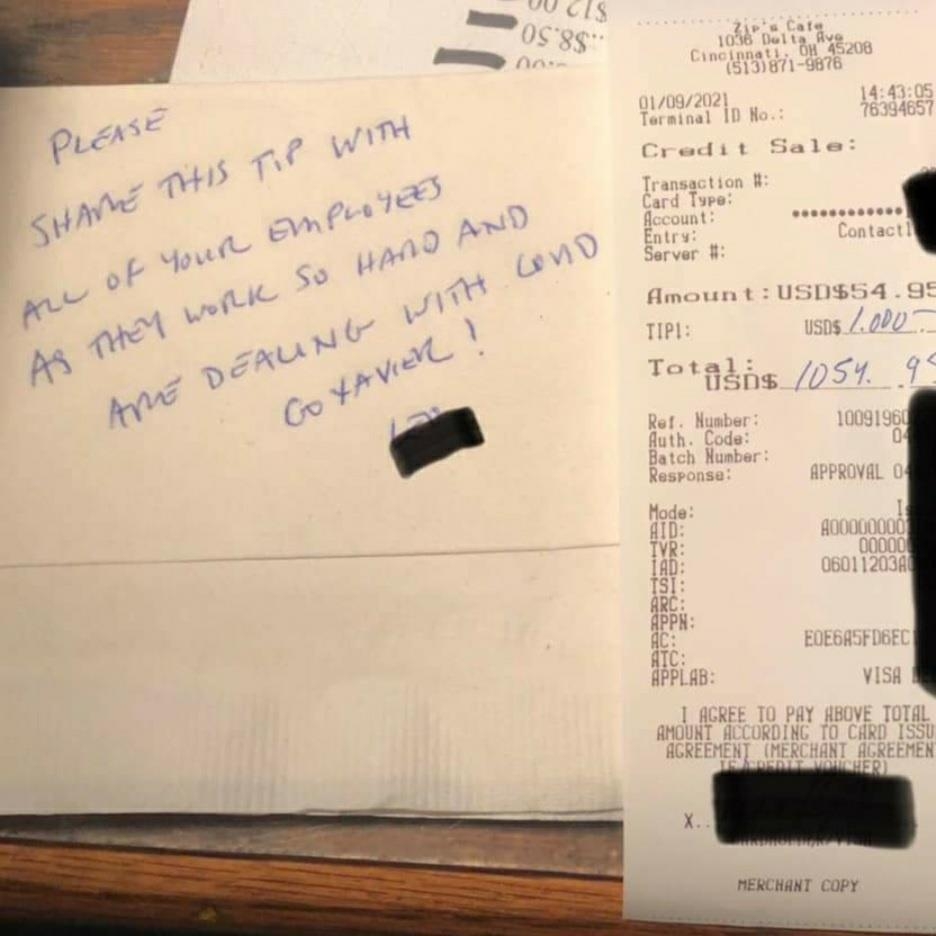 $12.00
...$8.50
PLEASE
SHARE THIS TIP WITH
ALL OF YOUR EMPLOYEES
AS THEY WORK SO HARD AND
ARE DEALING WITH COVID
GO XAVIER!
Zip's Cafe
1036 Delta Ave
Cincinnati, OH 45208
(513)871-9876
01/09/2021 14:43:05
Terminal ID No.: 76394657
Credit Sale:
Transaction #:
Card Type:
Account: ••••••••••••
Entry: Contactl
Server #:
Amount: USD$54.95
TIP1: USD$ 1,000
Total:
USD$ 1054. 95
Ref. Number: 10091960
Auth. Code: 04
Batch Number:
Response: APPROVAL 04
Mode: Is
AID: A000000000
TVR: 00000
IAD: 06011203A0
TSI:
ARC:
APPN:
AC: E0E6A5FD6EC
ATC:
APPLAB: VISA
I AGREE TO PAY ABOVE TOTAL
AMOUNT ACCORDING TO CARD ISSU
AGREEMENT (MERCHANT AGREEMEN
IF CREDIT VOUCHER)
X..
MERCHANT COPY